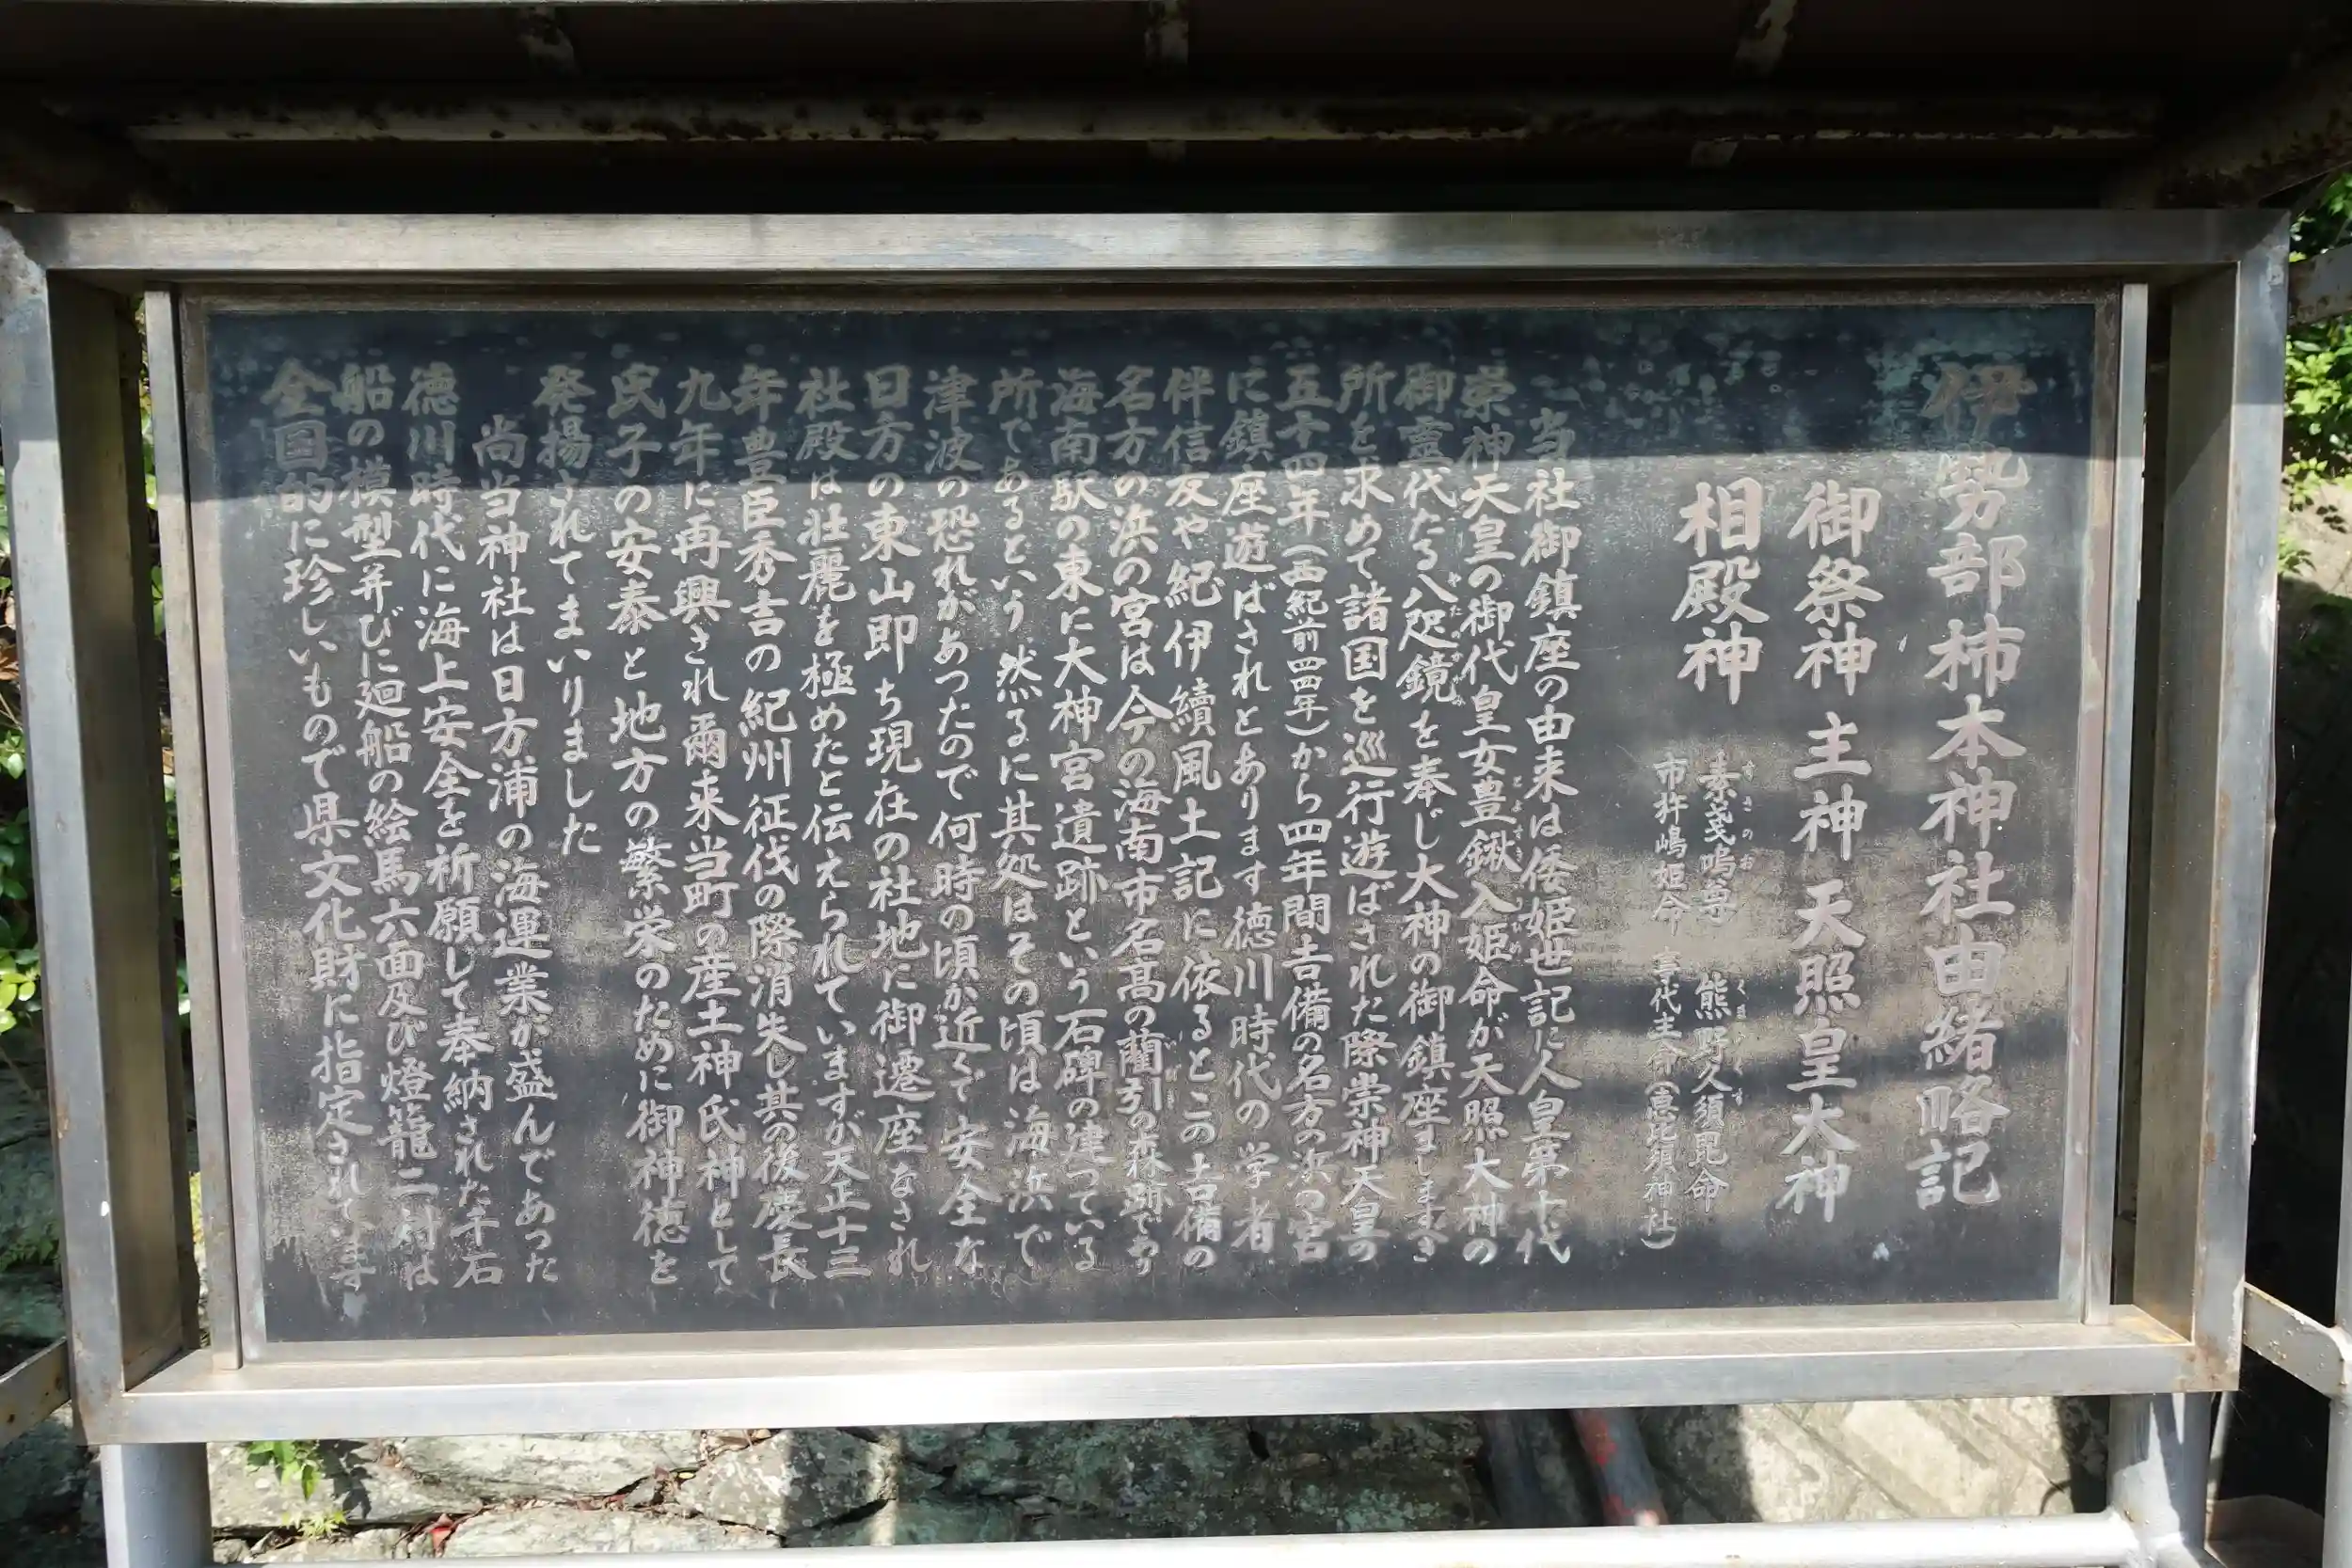 伊勢部柿本神社由緒略記
御祭神 主神 天照皇大神
相殿神
素戔嗚尊 熊野久須毘命
市杵嶋姫命 事代主命(恵比須神社)
当社御鎮座の由来は倭姫世記に人皇第十代
崇神天皇の御代皇女豊鍬入姫命が天照大神の
御霊代たる八咫鏡を奉じ大神の御鎮座ましますべき
所を求めて諸国を巡行遊ばされた際崇神天皇の
五十四年(西紀前四四年)から四年間吉備の名方の浜の宮
に鎮座遊ばされとあります徳川時代の学者
伴信友や紀伊續風土記に依るとこの吉備の
名方の浜の宮は今の海南市名高の藺引の森跡であり
海南駅の東に大神宮遺跡という石碑の建つている
所であるという 然るに其処はその頃は海浜で
津波の恐れがあつたので何時の頃か近くで安全な
日方の東山即ち現在の社地に御遷座なされ
社殿は壮麗を極めたと伝えられていますが天正十三
年豊臣秀吉の紀州征伐の際消失し其の後慶長
九年に再興され爾来当町の産土神氏神として
氏子の安泰と地方の繁栄のために御神徳を
発揚されてまいりました
尚当神社は日方浦の海運業が盛んであった
德川時代に海上安全を祈願して奉納された千石
船の模型并びに廻船の絵馬六面及び燈籠二対は
全国的に珍しいもので県文化財に指定されています